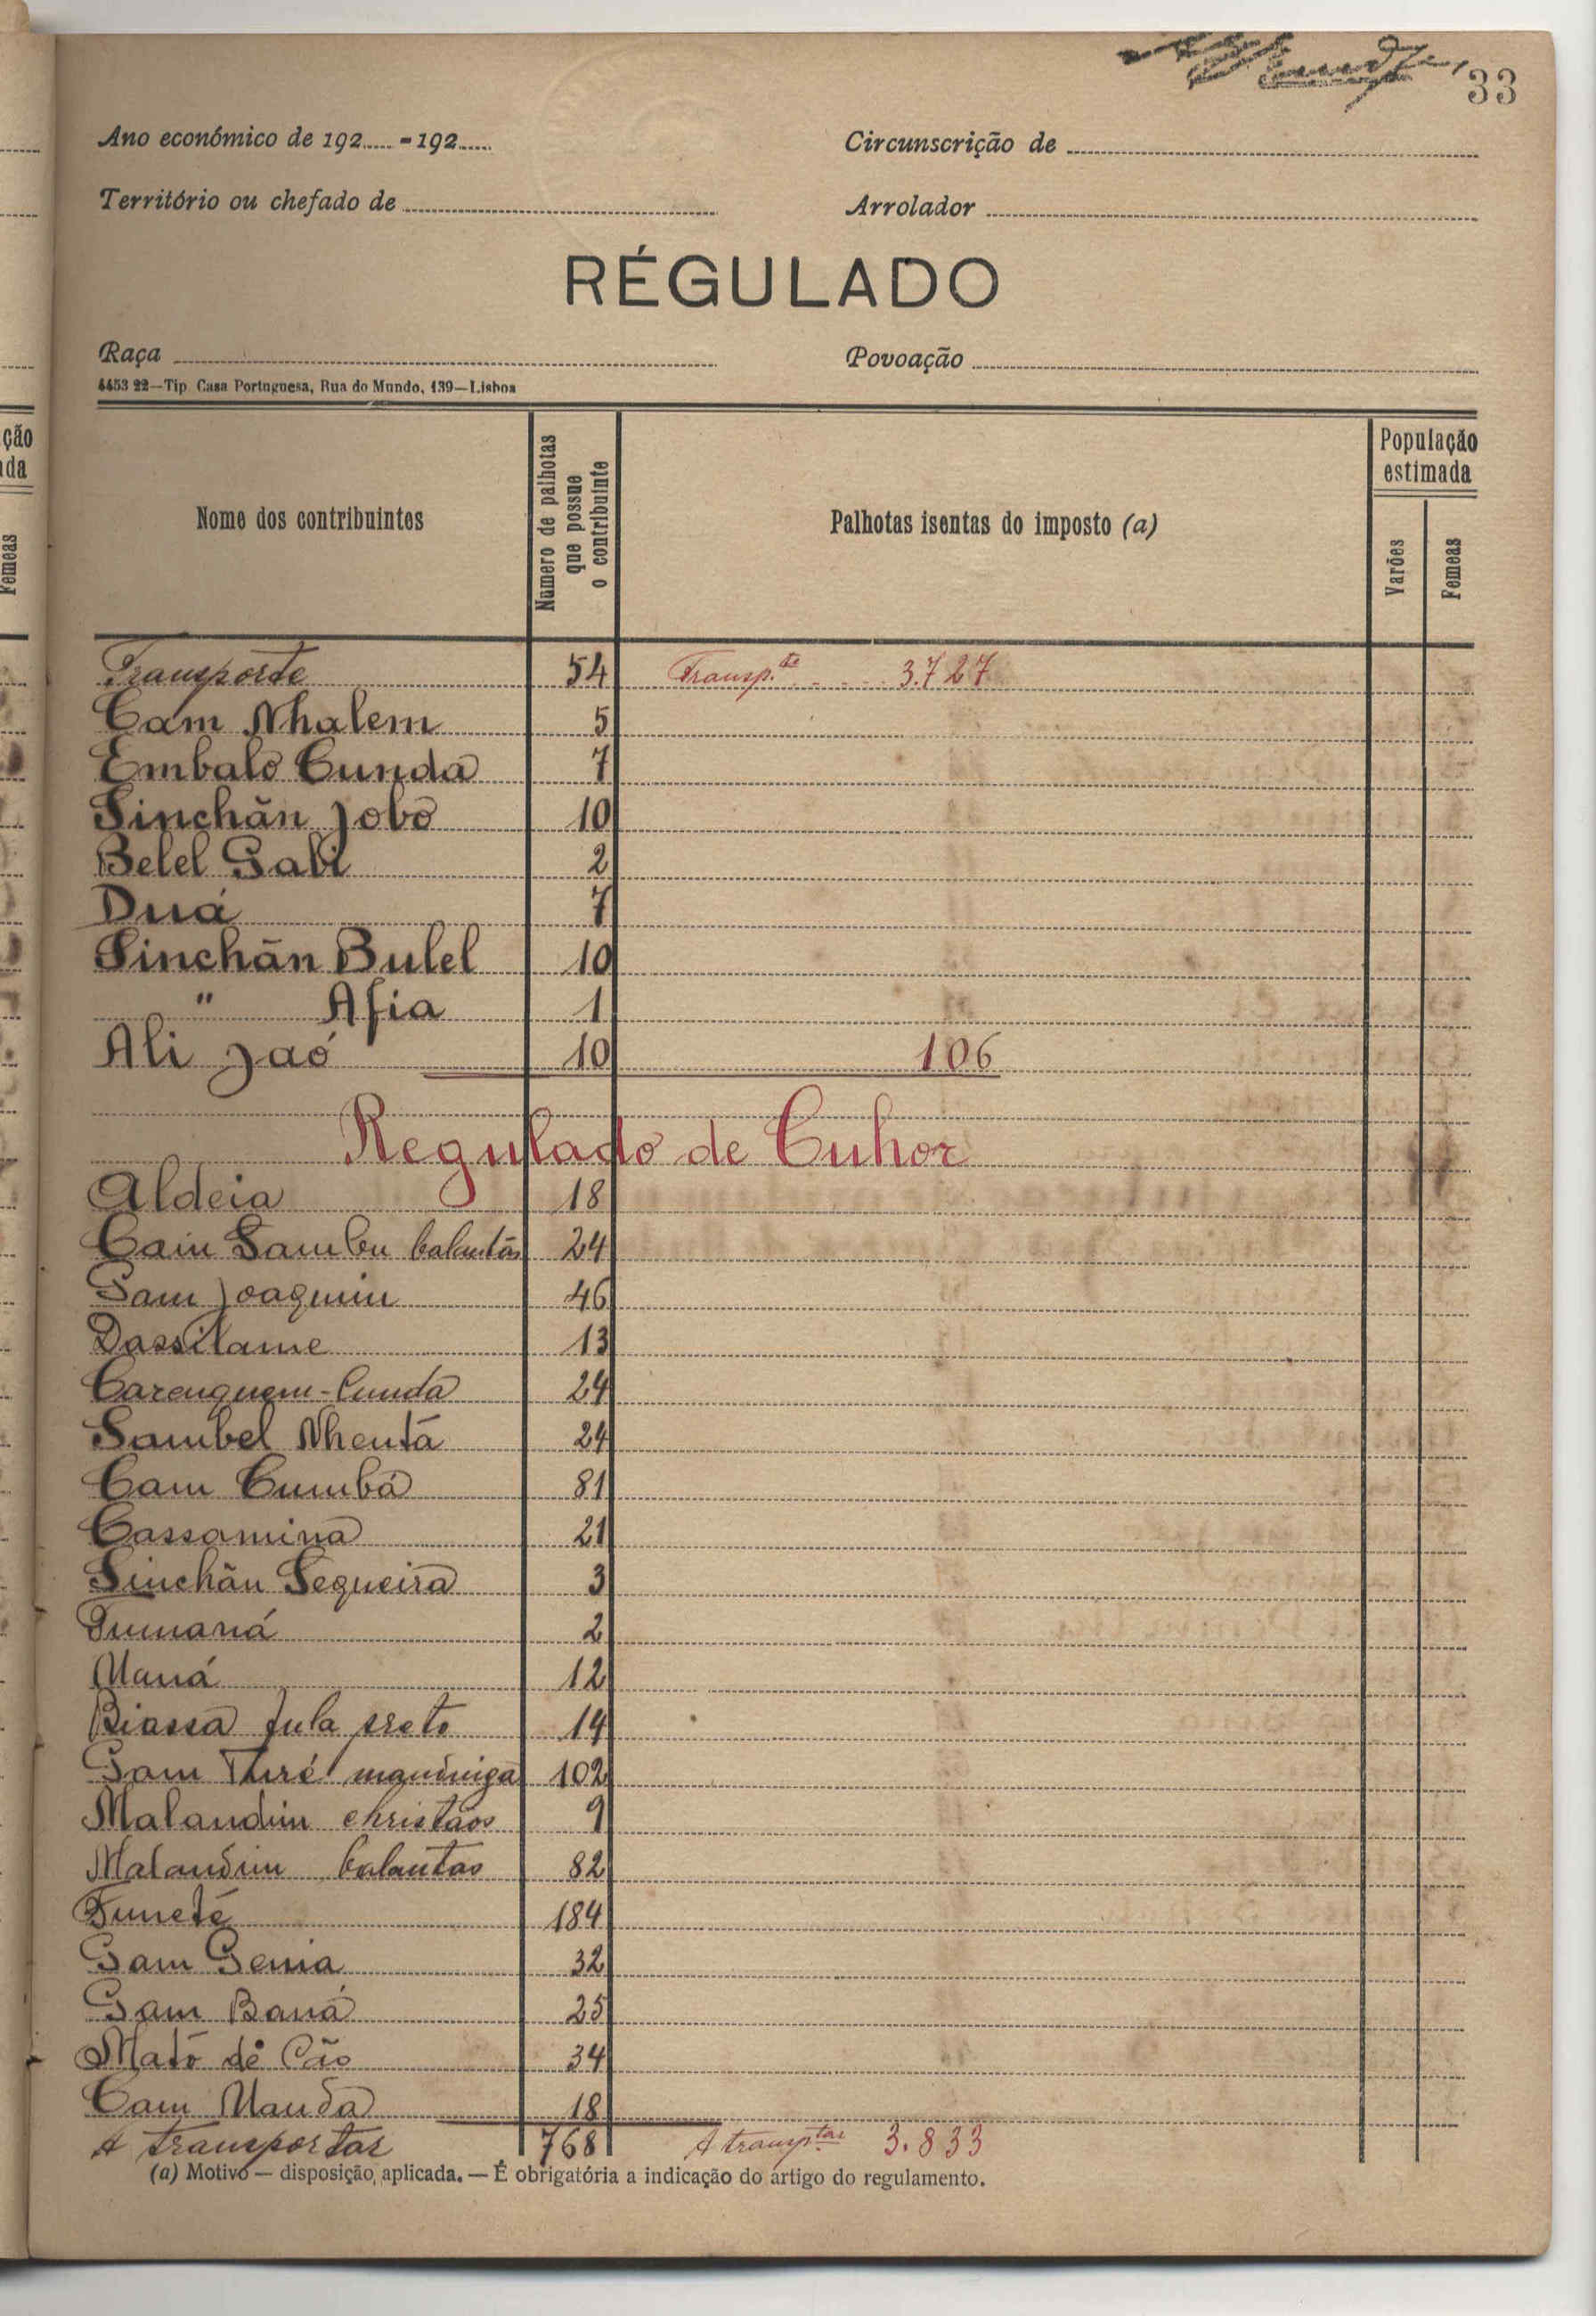 33
Ano económico de 192..... - 192.....
Circunscrição de
Território ou chefado de
Arrolador
RÉGULADO
Raça
Povoação
4453 22—Tip. Casa Portuguesa, Rua do Mundo, 139—Lisboa
Nome dos contribuintes
Número de palhotas que possue o contribuinte
Palhotas isentas do imposto (a)
População estimada
Varões
Femeas
Transporte 54 Transp.te 3.727
Cam Nhalem 5
Embalo Cunda 7
Sinchãn Jobo 10
Belel Gabi 2
Duá 7
Sinchãn Bulel 10
" Afia 1
Ali Jaó 10 106
Regulado de Cuhor
Aldeia 18
Cam Sambu balantas 24
Gam Joaquim 46
Dassilame 13
Carenguem-Cunda 24
Sambel Nhentá 24
Cam Cumbá 81
Cassamina 21
Sinchãn Sequeira 3
Tumaná 2
Maná 12
Biassa fula preto 14
Gam Turé mandinga 102
Malandim christãos 9
Malandim balantas 82
Funeté 184
Gam Genia 32
Gam Baná 25
Mato de Cão 34
Cam Manda 18
A transportar 768 A transp.tar 3.833
(a) Motivo — disposição, aplicada. — É obrigatória a indicação do artigo do regulamento.
ção
ada
Femeas